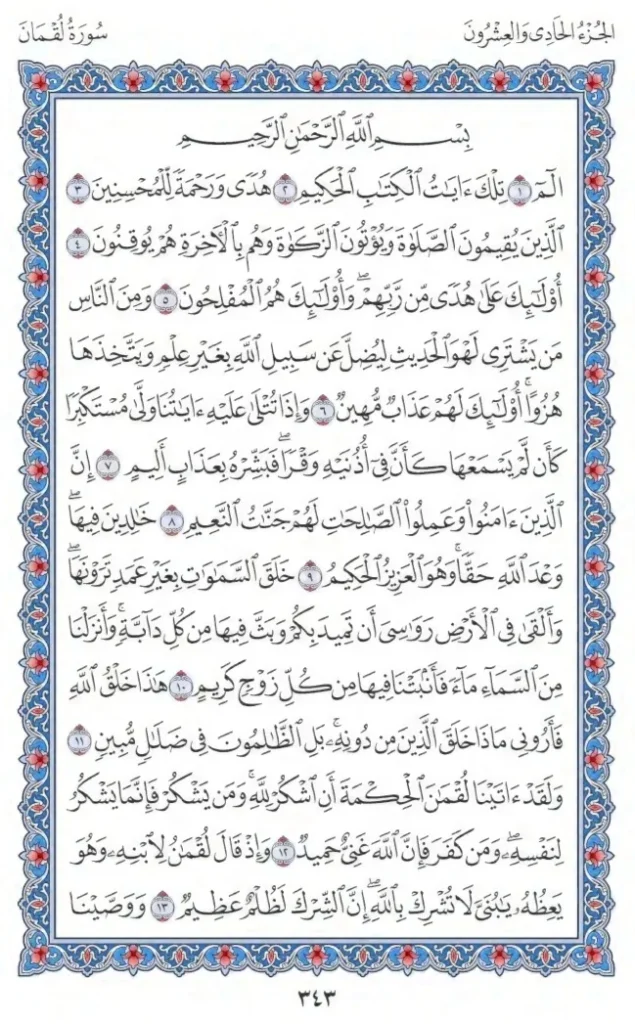 الجُزْءُ الحَادِى وَالعِشْرُونَ
سُورَةُ لُقْمَانَ
بِسْمِ ٱللَّهِ ٱلرَّحْمَٰنِ ٱلرَّحِيمِ
الٓمٓ ١ تِلْكَ ءَايَٰتُ ٱلْكِتَٰبِ ٱلْحَكِيمِ ٢ هُدًى وَرَحْمَةً لِّلْمُحْسِنِينَ ٣
ٱلَّذِينَ يُقِيمُونَ ٱلصَّلَوٰةَ وَيُؤْتُونَ ٱلزَّكَوٰةَ وَهُم بِٱلْأَخِرَةِ هُمْ يُوقِنُونَ ٤
أُوْلَٰٓئِكَ عَلَىٰ هُدًى مِّن رَّبِّهِمْ ۖ وَأُوْلَٰٓئِكَ هُمُ ٱلْمُفْلِحُونَ ٥ وَمِنَ ٱلنَّاسِ
مَن يَشْتَرِى لَهْوَ ٱلْحَدِيثِ لِيُضِلَّ عَن سَبِيلِ ٱللَّهِ بِغَيْرِ عِلْمٍ وَيَتَّخِذَهَا
هُزُوًا ۚ أُوْلَٰٓئِكَ لَهُمْ عَذَابٌ مُّهِينٌ ٦ وَإِذَا تُتْلَىٰ عَلَيْهِ ءَايَٰتُنَا وَلَّىٰ مُسْتَكْبِرًا
كَأَن لَّمْ يَسْمَعْهَا كَأَنَّ فِىٓ أُذُنَيْهِ وَقْرًا ۖ فَبَشِّرْهُ بِعَذَابٍ أَلِيمٍ ٧ إِنَّ
ٱلَّذِينَ ءَامَنُوا۟ وَعَمِلُوا۟ ٱلصَّٰلِحَٰتِ لَهُمْ جَنَّٰتُ ٱلنَّعِيمِ ٨ خَٰلِدِينَ فِيهَا ۖ
وَعْدَ ٱللَّهِ حَقًّا ۚ وَهُوَ ٱلْعَزِيزُ ٱلْحَكِيمُ ٩ خَلَقَ ٱلسَّمَٰوَٰتِ بِغَيْرِ عَمَدٍ تَرَوْنَهَا ۖ
وَأَلْقَىٰ فِى ٱلْأَرْضِ رَوَٰسِىَ أَن تَمِيدَ بِكُمْ وَبَثَّ فِيهَا مِن كُلِّ دَآبَّةٍ ۚ وَأَنزَلْنَا
مِنَ ٱلسَّمَآءِ مَآءً فَأَنۢبَتْنَا فِيهَا مِن كُلِّ زَوْجٍ كَرِيمٍ ١٠ هَٰذَا خَلْقُ ٱللَّهِ
فَأَرُونِى مَاذَا خَلَقَ ٱلَّذِينَ مِن دُونِهِۦ ۚ بَلِ ٱلظَّٰلِمُونَ فِى ضَلَٰلٍ مُّبِينٍ ١١
وَلَقَدْ ءَاتَيْنَا لُقْمَٰنَ ٱلْحِكْمَةَ أَنِ ٱشْكُرْ لِلَّهِ ۚ وَمَن يَشْكُرْ فَإِنَّمَا يَشْكُرُ
لِنَفْسِهِۦ ۖ وَمَن كَفَرَ فَإِنَّ ٱللَّهَ غَنِىٌّ حَمِيدٌ ١٢ وَإِذْ قَالَ لُقْمَٰنُ لِٱبْنِهِۦ وَهُوَ
يَعِظُهُۥ يَٰبُنَىَّ لَا تُشْرِكْ بِٱللَّهِ ۖ إِنَّ ٱلشِّرْكَ لَظُلْمٌ عَظِيمٌ ١٣ وَوَصَّيْنَا
٣٤٣